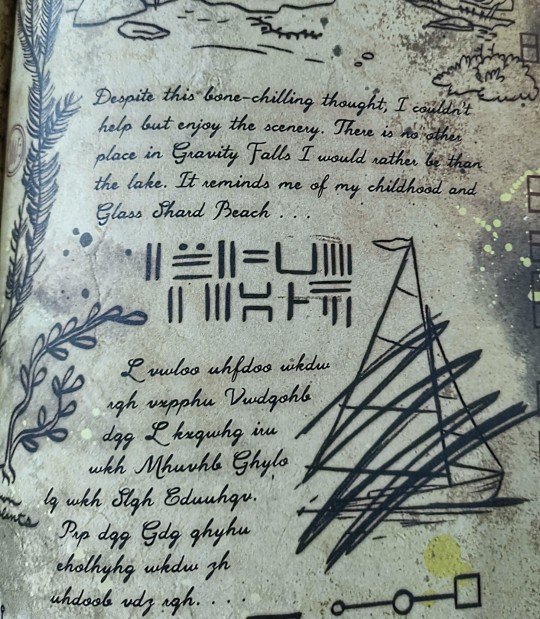 Despite this bone-chilling thought, I couldn't
help but enjoy the scenery. There is no other
place in Gravity Falls I would rather be than
the lake. It reminds me of my childhood and
Glass Shard Beach . . .
L vwloo uhfdoo wkdw
rqh vxpphu Vwdqohb
dqg L kxqwhg iru
wkh Mhuvhb Ghylo
lq wkh Slqh Eduuhqv.
Prp dqg Gdg qhyhu
eholhyhg wkdw zh
uhdoob vdz rqh. . . .